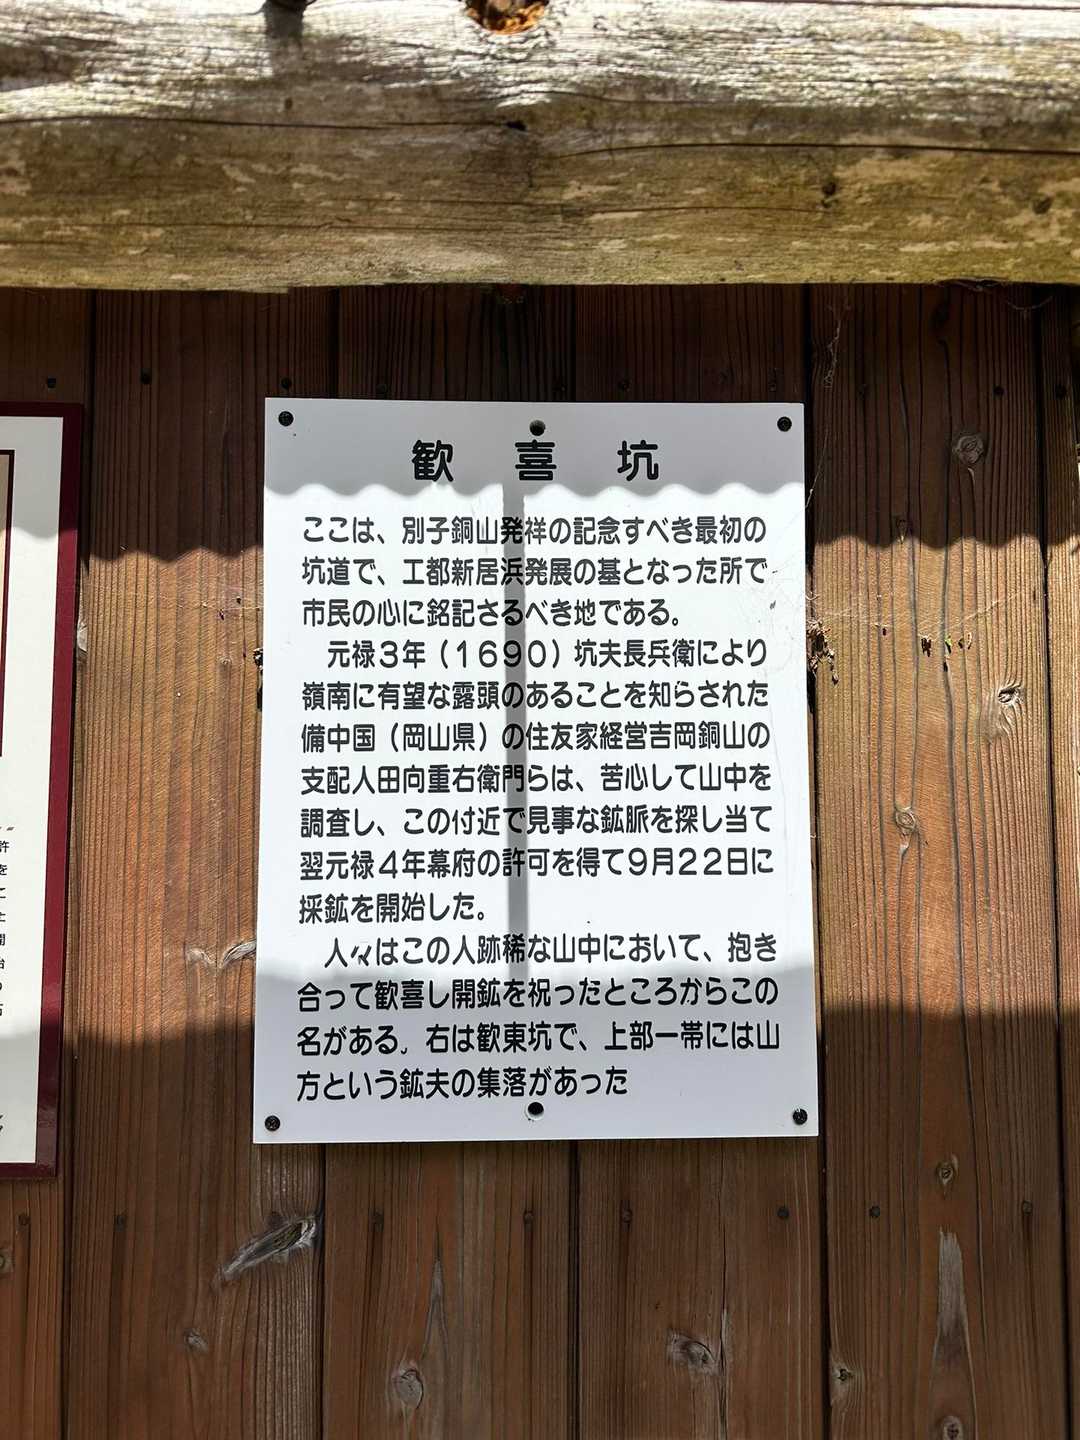 歓喜坑
ここは、別子銅山発祥の記念すべき最初の
坑道で、工都新居浜発展の基となった所で
市民の心に銘記さるべき地である。
元禄３年（１６９０）坑夫長兵衛により
嶺南に有望な露頭のあることを知らされた
備中国（岡山県）の住友家経営吉岡銅山の
支配人田向重右衛門らは、苦心して山中を
調査し、この付近で見事な鉱脈を探し当て
翌元禄４年幕府の許可を得て９月２２日に
採鉱を開始した。
人々はこの人跡稀な山中において、抱き
合って歓喜し開鉱を祝ったところからこの
名がある。右は歓東坑で、上部一帯には山
方という鉱夫の集落があった